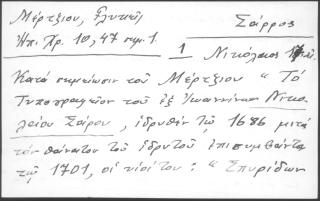 Μέρτζιου, Γλυκεῖς,
Σάρρος
Ἠπ. Χρ. 10, 47 σημ. 1.
1 Νικόλαος
Κατὰ σημείωσιν τοῦ Μέρτζιου "Τὸ
Τυπογραφεῖον τοῦ ἐξ Ἰωαννίνων Νικο-
λείου Σάρου, ἱδρυθὲν τῷ 1686 μετὰ
τὸν θάνατον τοῦ ἱδρυτοῦ ἐπισυμβάντα
τῷ 1701, οἱ υἱοί του: "Σπυρίδων